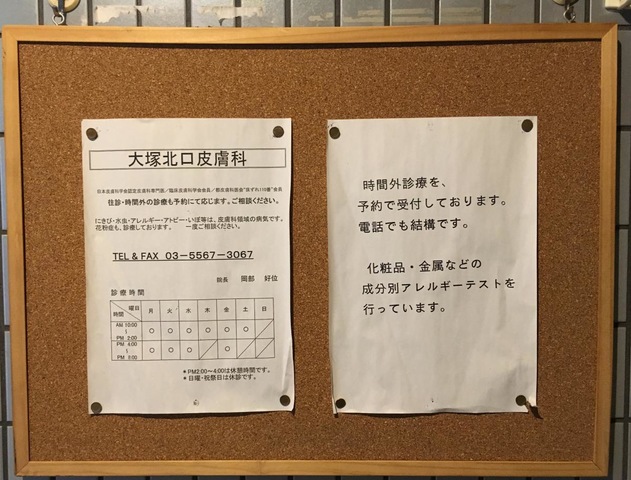 大塚北口皮膚科
日本皮膚科学会認定皮膚科専門医／臨床皮膚科学会会員／都皮膚科医会"床ずれ110番"会員
往診・時間外の診療も予約にて応じます。ご相談ください。
にきび・水虫・アレルギー・アトピー・いぼ等は、皮膚科領域の病気です。
花粉症も、診療しております。 一度ご相談ください。
TEL & FAX 03-5567-3067
院長 岡部 好位
診療時間
曜日 時間 月 火 水 木 金 土 日
AM 10:00 〜 PM 2:00 ○ ○ ○ ○ ○ ○
PM 4:00 〜 PM 8:00 ○ ○ ○ ○
＊PM2:00〜4:00は休憩時間です。
＊日曜・祝祭日は休診です。
時間外診療を、
予約で受付しております。
電話でも結構です。
化粧品・金属などの
成分別アレルギーテストを
行っています。